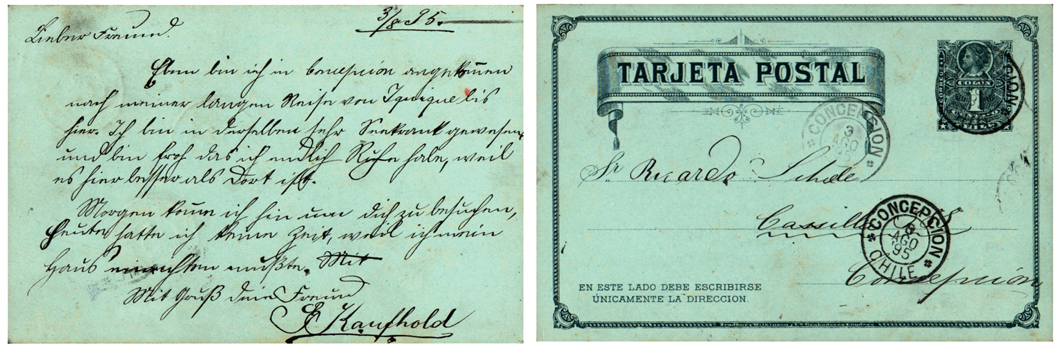 3/8 95.
Lieber Freund.
Eben bin ich in Concepcion angekom̅en
nach meiner langen Reise von Iquique bis
hier. Ich bin in derselben sehr Seekrank gewesen
und bin froh das ich endlich Ruhe habe, weil
es hier besser als Dort ist.
Morgen kom̅e ich hin um dich zu besuchen,
heute hatte ich keine Zeit, weil ich mein
Haus einrichten mußte. Mit
Mit Gruß dein Freund
Kaufhold
TARJETA POSTAL
COLON
CHILE
1
CONCEPCION
CONCEPCION
3
AGO
Sr Ricardo
Casilla
CONCEPCION
3
AGO
95
CHILE
Concepción
EN ESTE LADO DEBE ESCRIBIRSE
ÚNICAMENTE LA DIRECCION.